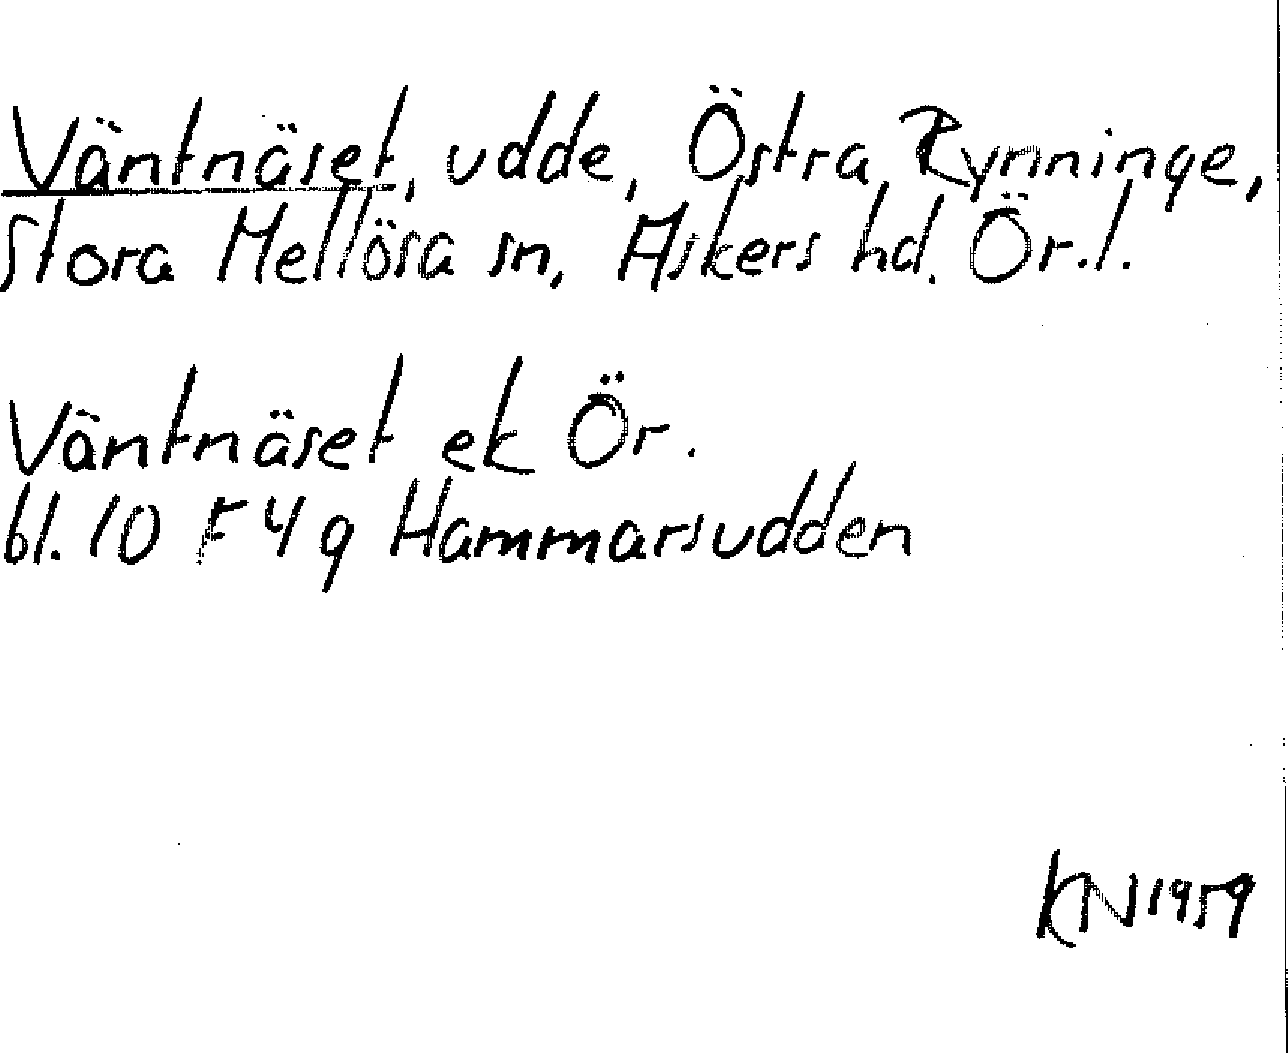 Väntnäset, udde, Östra Rynninge,
Stora Mellösa sn, Askers hd. Ör.l.
Väntnäset ek Ör.
bl. 10 F 4 g Hammarsudden
KN 1959